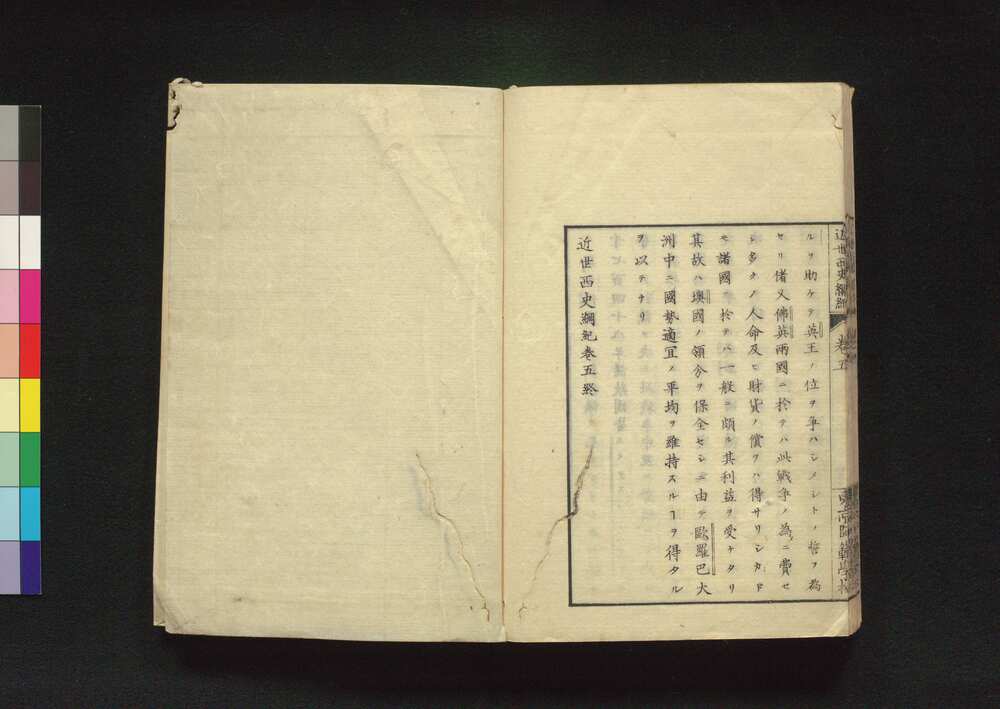 近世西史綱紀 卷五
師範學校
ルヲ助ケテ英王ノ位ヲ爭ハシメントノ誓ヲ為
セリ偖又佛英兩國ニ於テハ此戰爭ノ為ニ費セ
シ多クノ人命及ヒ財貨ノ償ヲハ得サリシカド
モ諸國ニ於テハ一般ニ頗ル其利益ヲ受ケタリ
其故ハ墺國ノ領分ヲ保全セシニ由テ歐羅巴大
洲中ニ國勢適冝ノ平均ヲ維持スルヿヲ得タル
ヲ以テナリ
近世西史綱紀卷五終